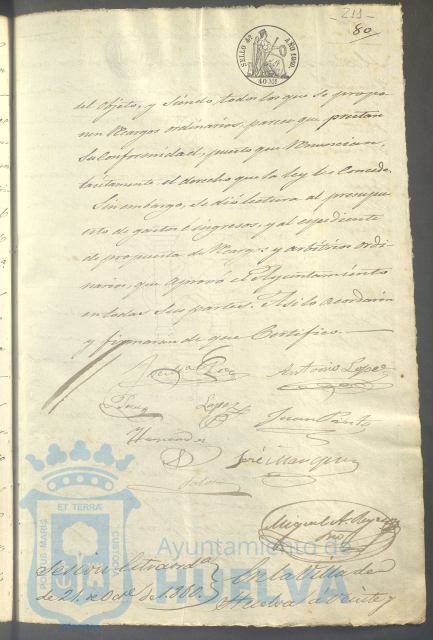 211
80
SELLO 4º AÑO 1860
40 MS
del Objeto, y siendo, todos los que se propo
nen Recargos ordinarios, parece que prestan
su Conformidad, puesto que renuncian,
tacitamente el derecho que la ley les Concede.
Sin embargo, se dió lectura al presupu
esto de gastos é ingresos, y al espediente
de propuesta de Recargs. y arbitrios ordi
narios, que aprovó el Ayuntamiento
en todas sus partes. Asi lo acordaron
y firmaron de que Certifico.
Antonio Lopez
Lopez
Juan Pinto
Hernandez
José Marquez
Miguel A.
Ayuntamiento de
HUELVA
PORTUS MARIS ET TERRAE CUSTODIA
Sesion
de 21 de Oce. de 1860.
En la Villa de
Huelva á veinte y